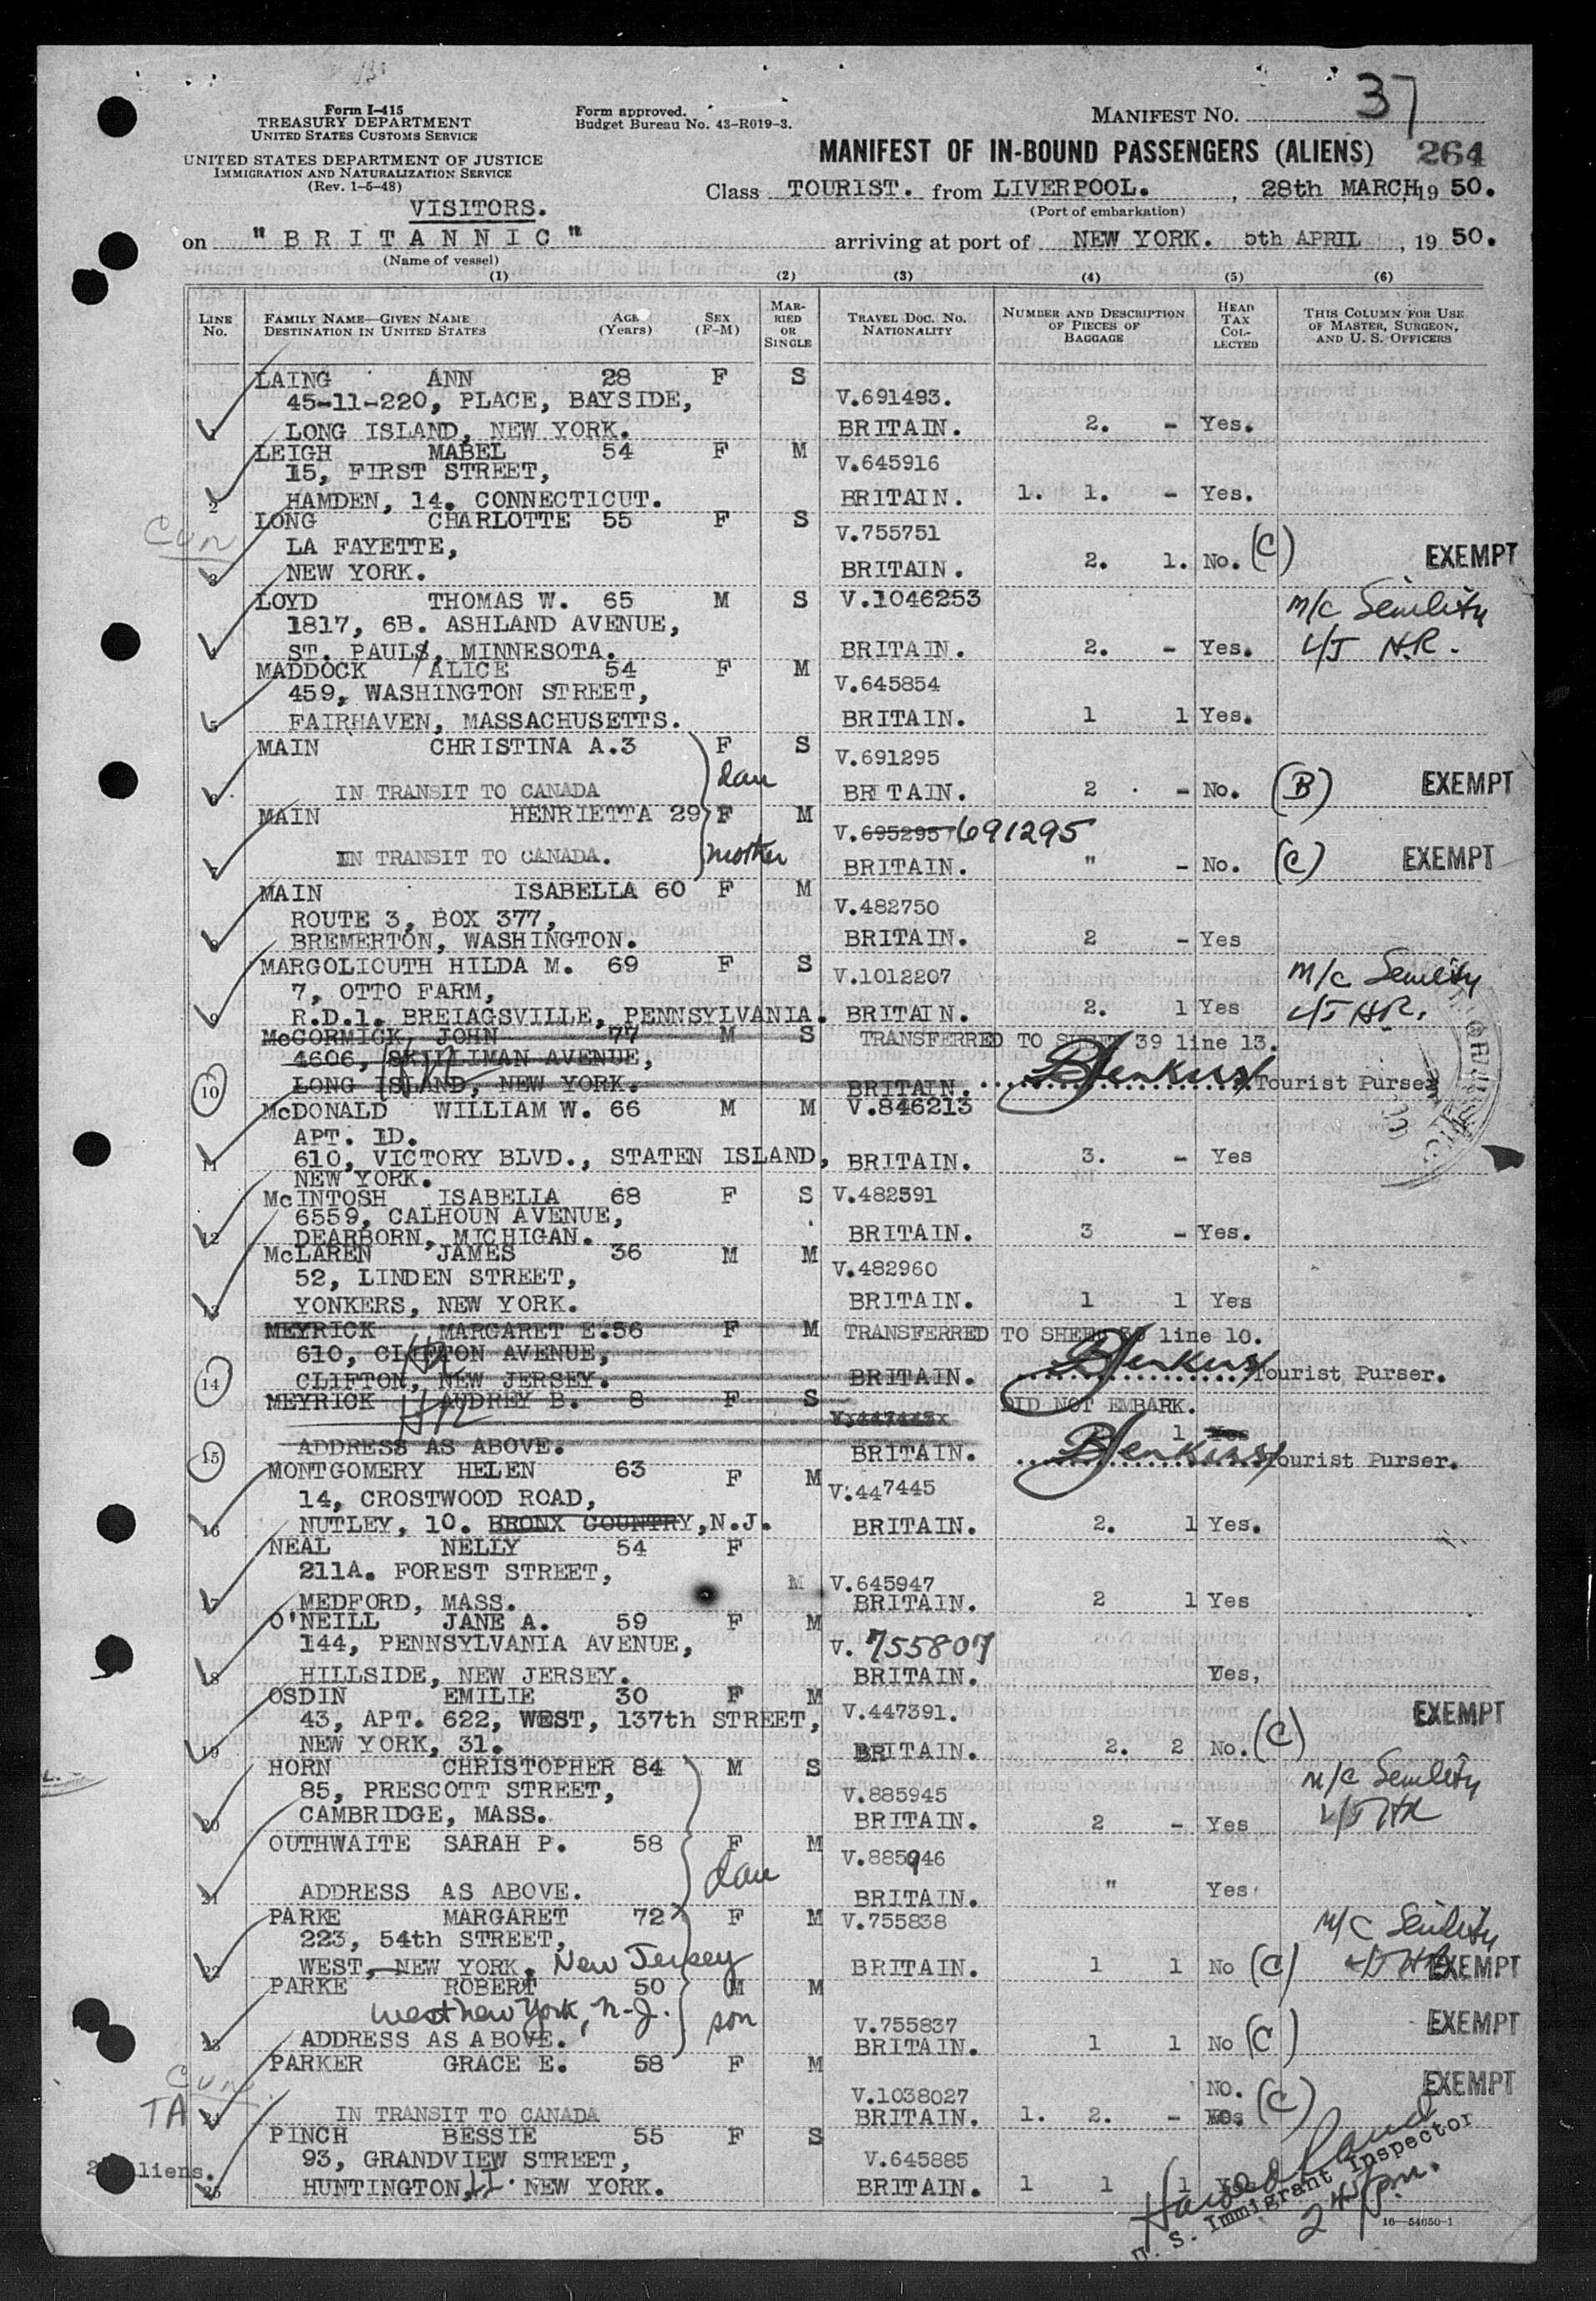 37
Form I-415
TREASURY DEPARTMENT
UNITED STATES CUSTOMS SERVICE
Form approved.
Budget Bureau No. 43-R019-3.
MANIFEST NO.
UNITED STATES DEPARTMENT OF JUSTICE
IMMIGRATION AND NATURALIZATION SERVICE
(Rev. 1-5-48)
MANIFEST OF IN-BOUND PASSENGERS (ALIENS) 264
Class TOURIST. from LIVERPOOL. , 28th MARCH, 19 50.
(Port of embarkation)
VISITORS.
on "BRITANNIC" arriving at port of NEW YORK. 5th APRIL , 19 50.
(Name of vessel)
(1) (2) (3) (4) (5) (6)
LINE No. FAMILY NAME—GIVEN NAME DESTINATION IN UNITED STATES AGE (Years) SEX (F-M) MARRIED OR SINGLE TRAVEL DOC. NO. NATIONALITY NUMBER AND DESCRIPTION OF PIECES OF BAGGAGE HEAD TAX COLLECTED THIS COLUMN FOR USE OF MASTER, SURGEON, AND U. S. OFFICERS
LAING ANN 28 F S
45-11-220, PLACE, BAYSIDE, V.691493.
LONG ISLAND, NEW YORK. BRITAIN. 2. - Yes.
LEIGH MABEL 54 F M
15, FIRST STREET, V.645916
2 HAMDEN, 14. CONNECTICUT. BRITAIN. 1. 1. - Yes.
LONG CHARLOTTE 55 F S
LA FAYETTE, V.755751
3 NEW YORK. BRITAIN. 2. 1. No. (C) EXEMPT
LOYD THOMAS W. 65 M S V.1046253 m/c Senility
1817, 6B. ASHLAND AVENUE,
ST. PAULS, MINNESOTA. BRITAIN. 2. - Yes. L/J H.R.
MADDOCK ALICE 54 F M
459, WASHINGTON STREET, V.645854
5 FAIRHAVEN, MASSACHUSETTS. BRITAIN. 1 1 Yes.
MAIN CHRISTINA A. 3 F S
V.691295
dau
6 IN TRANSIT TO CANADA BRITAIN. 2 - No. (B) EXEMPT
MAIN HENRIETTA 29 F M
V.695295 691295
IN TRANSIT TO CANADA. mother BRITAIN. " - No. (C) EXEMPT
MAIN ISABELLA 60 F M
ROUTE 3, BOX 377, V.482750
BREMERTON, WASHINGTON. BRITAIN. 2 - Yes
MARGOLIOUTH HILDA M. 69 F S m/c Senility
7, OTTO FARM, V.1012207
9 R.D.1. BREIAGSVILLE, PENNSYLVANIA. BRITAIN. 2. 1 Yes L/J H.R.
McCORMICK, JOHN 77 M S TRANSFERRED TO SHEET 39 line 13.
4606, SKILLIMAN AVENUE,
10 LONG ISLAND, NEW YORK. BRITAIN. BJenkins Tourist Purser
McDONALD WILLIAM W. 66 M M V.846213
APT. 1D.
11 610, VICTORY BLVD., STATEN ISLAND, BRITAIN. 3. - Yes
NEW YORK.
McINTOSH ISABELLA 68 F S V.482591
6559, CALHOUN AVENUE,
12 DEARBORN, MICHIGAN. BRITAIN. 3 - Yes.
McLAREN JAMES 36 M M
52, LINDEN STREET, V.482960
13 YONKERS, NEW YORK. BRITAIN. 1 1 Yes
MEYRICK MARGARET E. 56 F M TRANSFERRED TO SHEET line 10.
610, CLIFTON AVENUE,
14 CLIFTON, NEW JERSEY. BRITAIN. BJenkins Tourist Purser.
MEYRICK AUDREY B. 8 F S DID NOT EMBARK.
HR
1 Yes
15 ADDRESS AS ABOVE. BRITAIN. BJenkins Tourist Purser.
MONTGOMERY HELEN 63 F M
14, CROSTWOOD ROAD, V.447445
16 NUTLEY, 10. BRONX COUNTRY, N.J. BRITAIN. 2. 1 Yes.
NEAL NELLY 54 F
211A. FOREST STREET, M V.645947
17 MEDFORD, MASS. BRITAIN. 2 1 Yes
O'NEILL JANE A. 59 F M
144, PENNSYLVANIA AVENUE, V. 755807
18 HILLSIDE, NEW JERSEY. BRITAIN. Yes,
OSDIN EMILIE 30 F M
43, APT. 622, WEST, 137th STREET, V.447391. EXEMPT
19 NEW YORK, 31. BRITAIN. 2. 2 No. (C)
HORN CHRISTOPHER 84 M S m/c Senility
85, PRESCOTT STREET, V.885945
20 CAMBRIDGE, MASS. BRITAIN. 2 - Yes L/J HR
OUTHWAITE SARAH P. 58 F M
V.885946
dau
21 ADDRESS AS ABOVE. BRITAIN. " Yes
PARKE MARGARET 72 F M V.755838 m/c Senility
223, 54th STREET,
22 WEST, NEW YORK. New Jersey BRITAIN. 1 1 No (C) EXEMPT
PARKE ROBERT 50 M M
West New York, N.J. son V.755837 EXEMPT
23 ADDRESS AS ABOVE. BRITAIN. 1 1 No (C)
PARKER GRACE E. 58 F M
V.1038027 NO. (C) EXEMPT
TA 24 IN TRANSIT TO CANADA BRITAIN. 1. 2. -
PINCH BESSIE 55 F S
93, GRANDVIEW STREET, V.645885
liens. 25 HUNTINGTON, LI. NEW YORK. BRITAIN. 1 1 1
U. S. Immigrant Inspector
16—54650-1